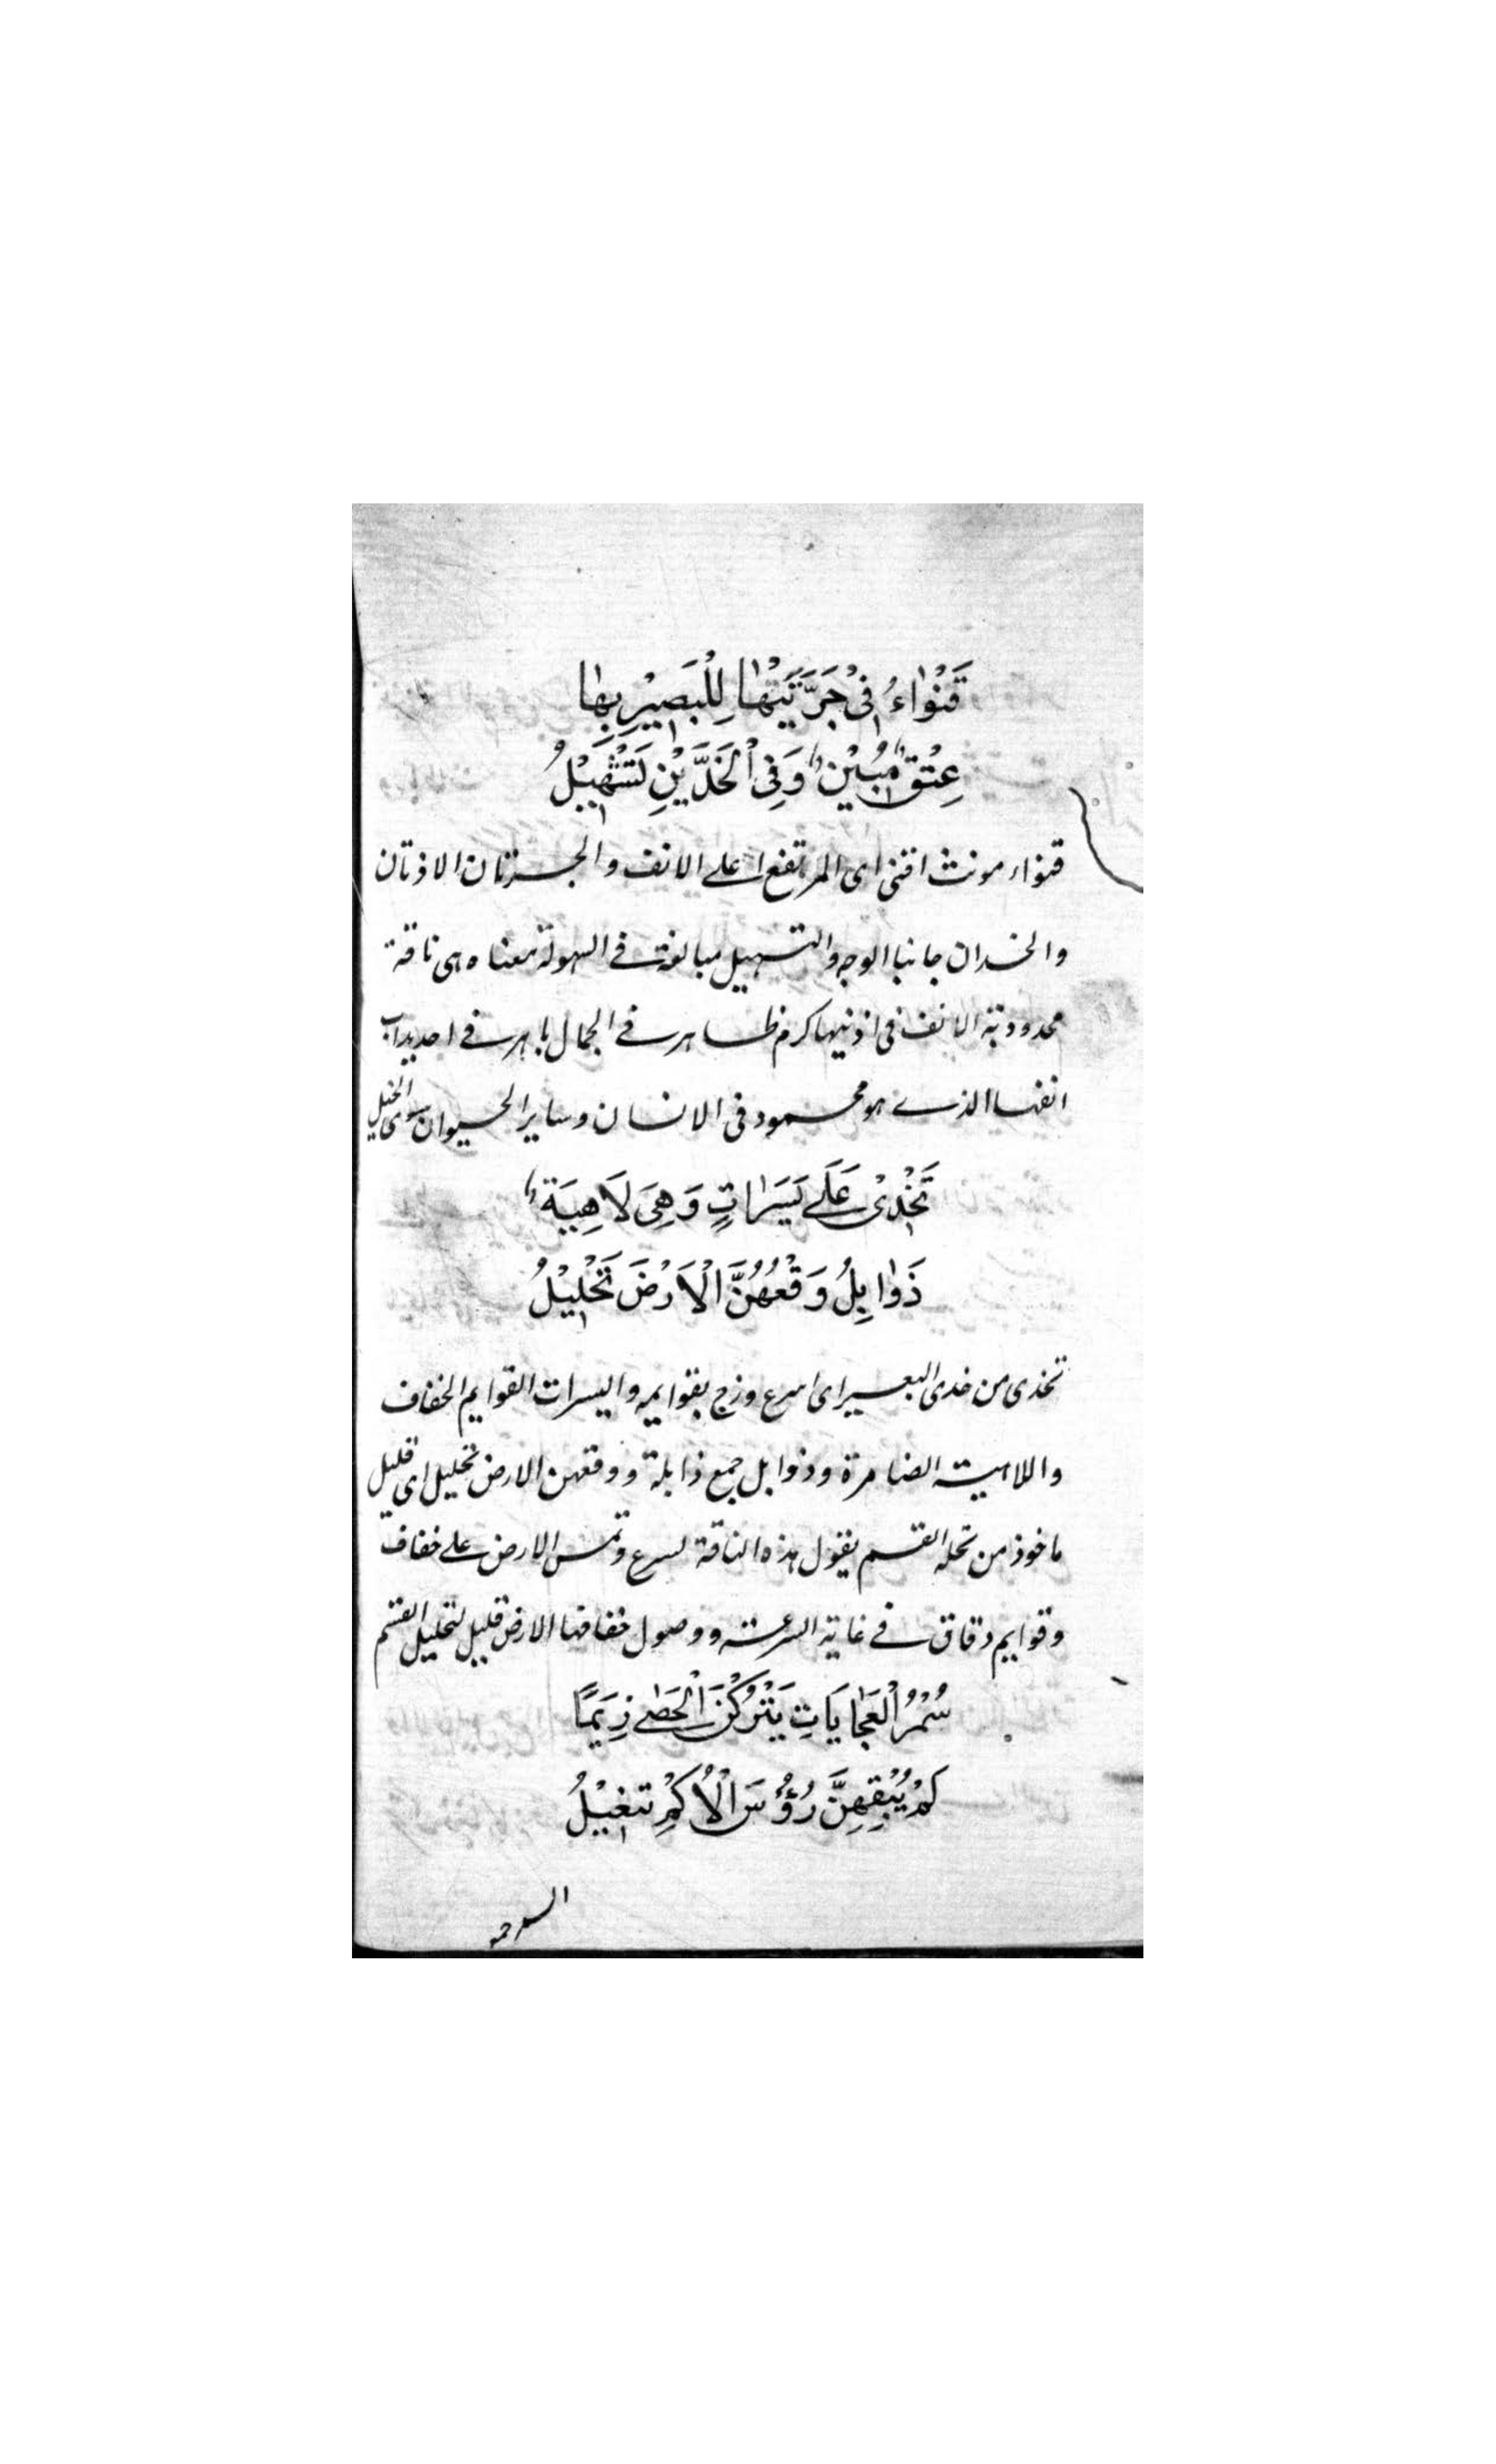 قَنْوَاءُ فِيْ جَرَّتَيْهَا لِلْبَصِيْرِ بِهَا
عِتْقٌ مُبِيْنٌ وَفِي الْخَدَّيْنِ تَسْهِيْلُ
قنواء مونث اقنى اى المرتفع اعلے الانف والجرتان الاذنان
والخدان جانبا الوجه والتسهيل مبالغة فے السهولة معناه هى ناقة
محدودبة الانف فى اذنيها كرم ظاهر فے الجمال باهر فے احديداب
انفها الذے هو محمود فى الانسان وساير الحيوان سوى الخيل
تَخْذِىْ عَلَے يَسَرَاتٍ وَهِىَ لَاهِيَةٌ
ذَوَابِلُ وَقْعُهُنَّ الْاَرْضَ تَحْلِيْلُ
تخذى من خدى البعير اى اسرع وزج بقوايمه واليسرات القوايم الخفاف
واللاهية الضامرة وذوابل جمع ذابلة ووقعهن الارض تحليل اى قليل
ماخوذ من تحلة القسم يقول هذه الناقة تسرع وتمس الارض علے خفاف
وقوايم دقاق فے غاية السرعة ووصول خفافها الارض قليل لتحليل القسم
سُمْرُ الْعَجَايَاتِ يَتْرُكْنَ الْحَصٰے زِيَمًا
لَمْ يُبْقِهِنَّ رُؤُسَ الْاُكْمِ تَنْغِيْلُ
السمرجمع